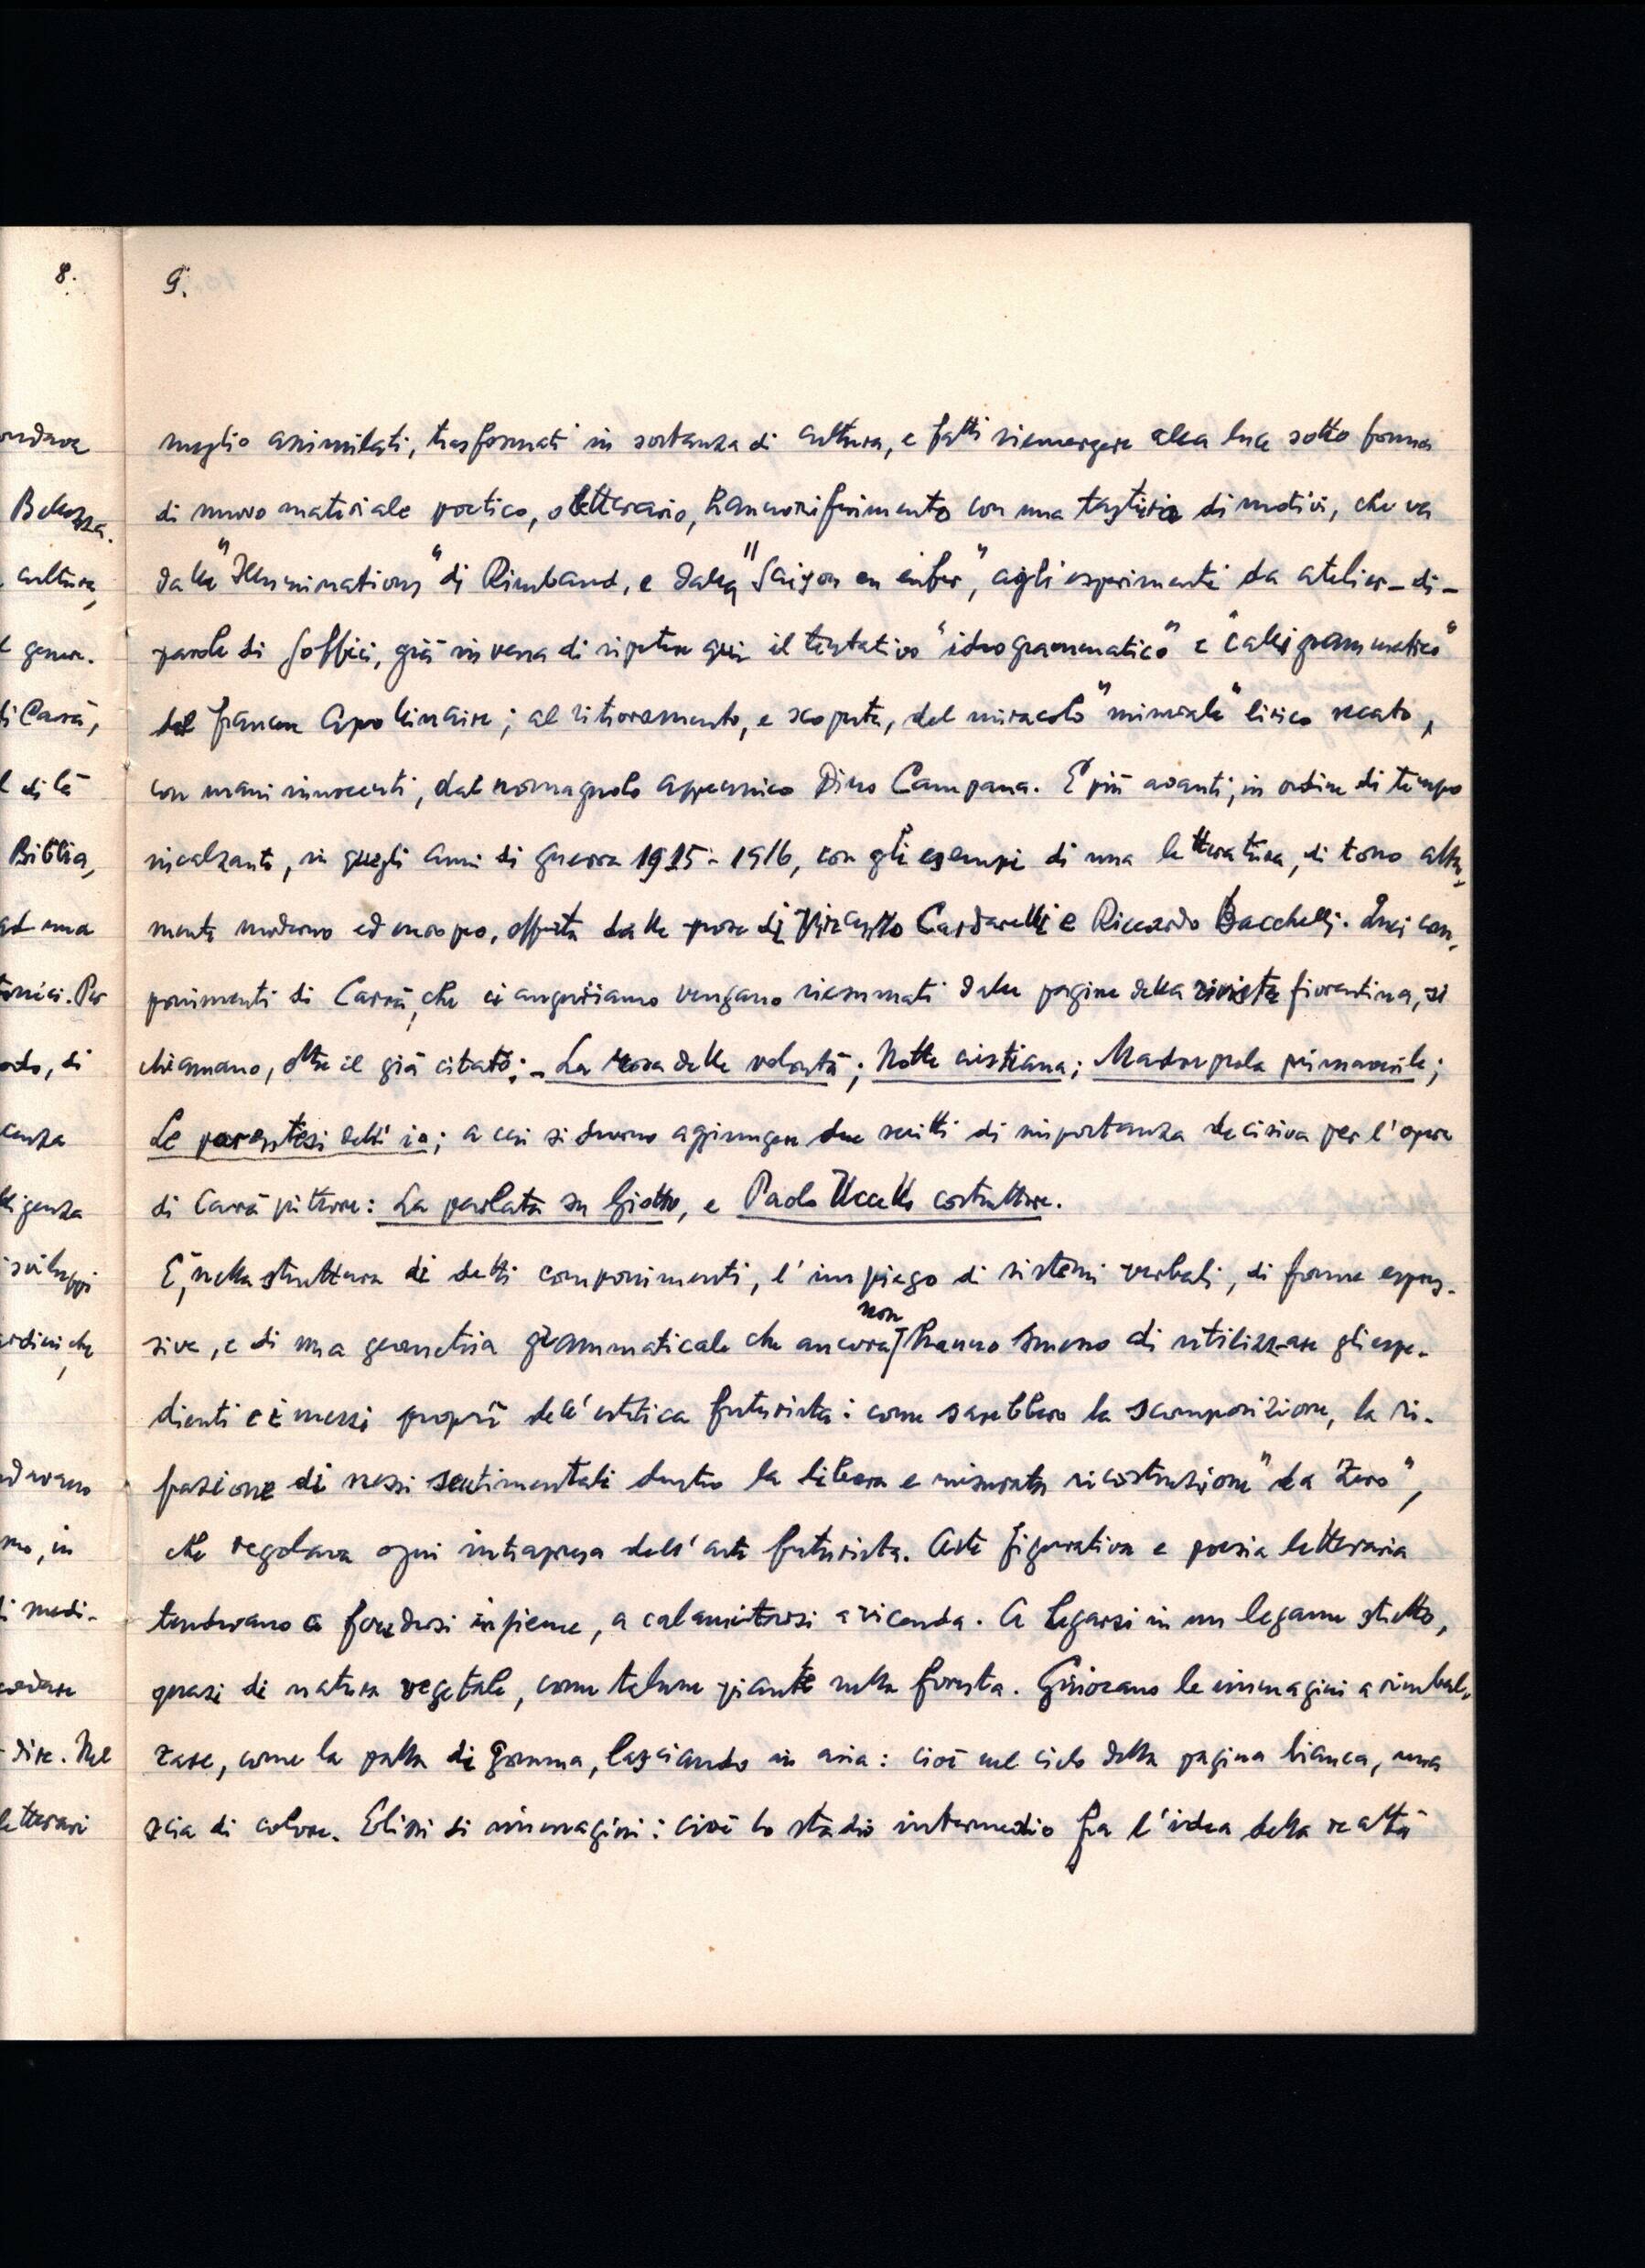 8.
9.
ondava
Bellezza.
cultura,
l genere.
di Carrà,
l di là
Bibbia,
ad una
tonici. Per
ordo, di
cenza
ligenza
sviluppi
ardini che
ndavano
mo, in
i medi-
cedere
dire. Nel
letterari
meglio assimilati, trasformati in sostanza di cultura, e fatti riemergere alla luce sotto forma
di nuovo materiale poetico, o letterario, hanno riferimento con una tastiera di motivi, che va
dalle "Illuminations" di Rimbaud, e dalla "Saison en enfer", agli esperimenti da atelier-di-
parole di Soffici, già in vena di ripetere qui il tentativo "ideogrammatico" e "calligrammatico"
del francese Apollinaire; al ritrovamento, e scoperta, del miracolo "minerale" lirico recato,
con mani innocenti, dal romagnolo appenninico Dino Campana. E più avanti, in ordine di tempo
incalzante, in quegli anni di guerra 1915-1916, con gli esempi di una letteratura, di tono alta-
mente moderno ed europeo, offerta dalle prose di Vincenzo Cardarelli e Riccardo Bacchelli. Quei com-
ponimenti di Carrà, che ci auguriamo vengano riesumati dalle pagine della rivista fiorentina, si
chiamano, oltre il già citato: - La rosa delle volontà; Notte cristiana; primaverile;
Le parentesi dell'io; a cui si devono aggiungere due scritti di importanza decisiva per l'opera
di Carrà pittore: La parlata su Giotto, e Paolo Uccello costruttore.
È, nella struttura di detti componimenti, l'impiego di sistemi verbali, di forme espres-
sive, e di una geometria grammaticale che ancora non hanno smesso di utilizzare gli espe-
dienti e i mezzi proprî dell'estetica futurista: come sarebbero la scomposizione, la ri-
fazione di nessi sentimentali dentro la libera e misurata ricostruzione "da zero",
che regolava ogni intrapresa dell'arte futurista. Arte figurativa e poesia letteraria
tendevano a fondersi insieme, a calamitarsi a vicenda. A legarsi in un legame stretto,
quasi di natura vegetale, come talune piante nella foresta. Giuocano le immagini a rimbal-
zare, come la palla di gomma, lasciando in aria: cioè nel cielo della pagina bianca, una
scia di colore. Elissi di immagini: cioè lo stadio intermedio fra l'idea della realtà